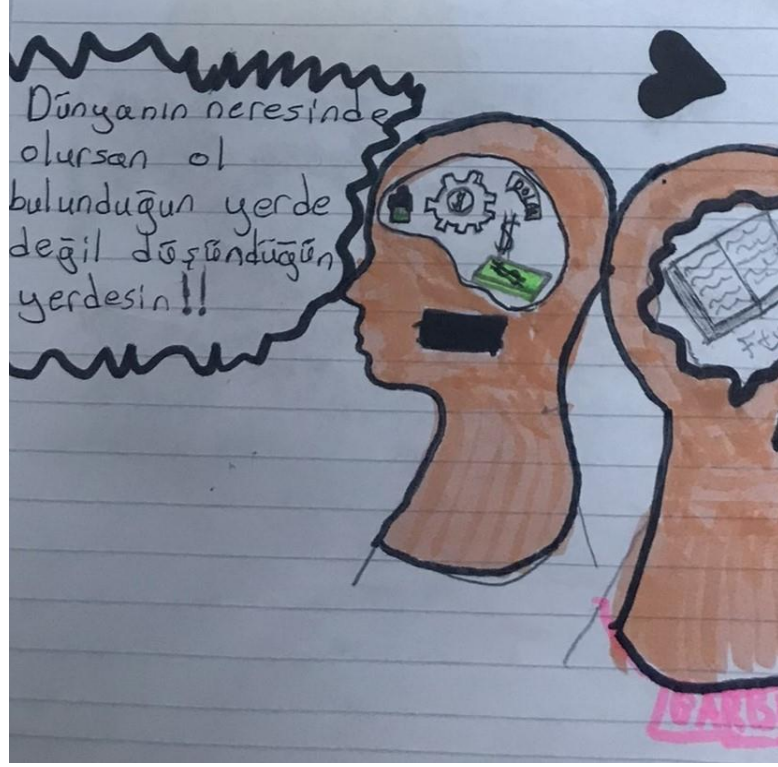 Dünyanın neresinde
olursan ol
bulunduğun yerde
değil düşündüğün
yerdesin!!
DOLAR
$
$